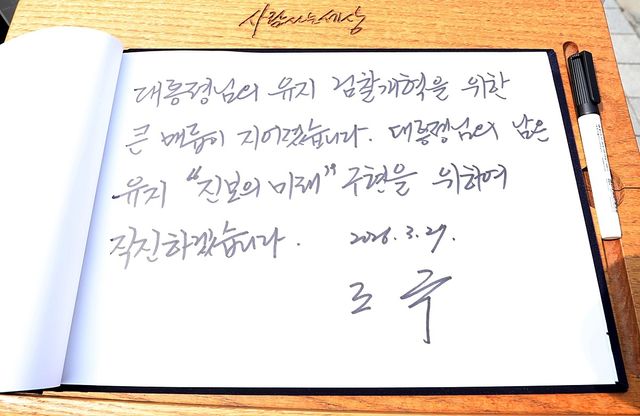 사람사는세상
대통령님의 유지 검찰개혁을 위한
큰 매듭이 지어졌습니다. 대통령님의 남은
유지 "진보의 미래" 구현을 위하여
직진하겠습니다. 2026. 3. 27.
조 국